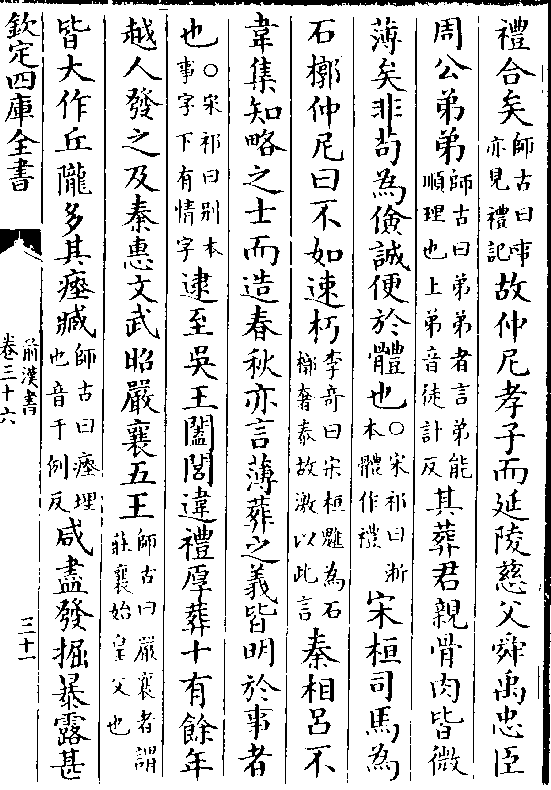 禮合矣師古曰事亦見禮記故仲尼孝子而延陵慈父舜禹忠臣
周公弟弟師古曰弟弟者言弟能順理也上弟音徒計反其葬君親骨肉皆微
薄矣非苟為儉誠便於體也○宋祁曰浙本體作禮宋桓司馬為
石槨仲尼曰不如速朽李奇曰宋桓魋為石槨奢泰故激以此言秦相呂不
韋集知略之士而造春秋亦言薄葬之義皆明於事者
也○宋祁曰別本事字下有情字逮至吳王闔閭違禮厚葬十有餘年
越人發之及秦惠文武昭嚴襄五王師古曰嚴襄者謂莊襄始皇父也
皆大作丘隴多其瘞臧師古曰瘞埋也音于例反咸盡發掘暴露甚
欽定四庫全書
前漢書
卷三十六
三十一